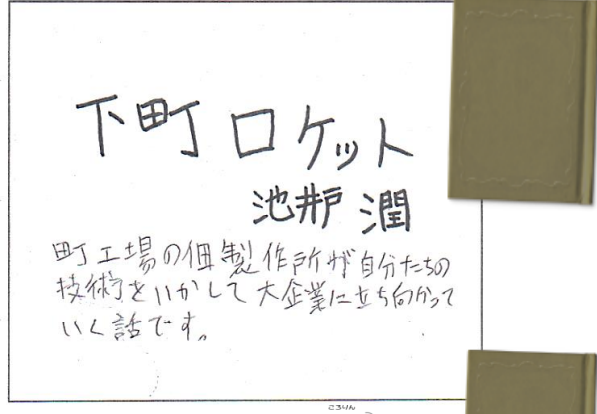 下町ロケット
池井戸 潤
町工場の佃製作所が自分たちの
技術をいかして大企業に立ち向かって
いく話です。